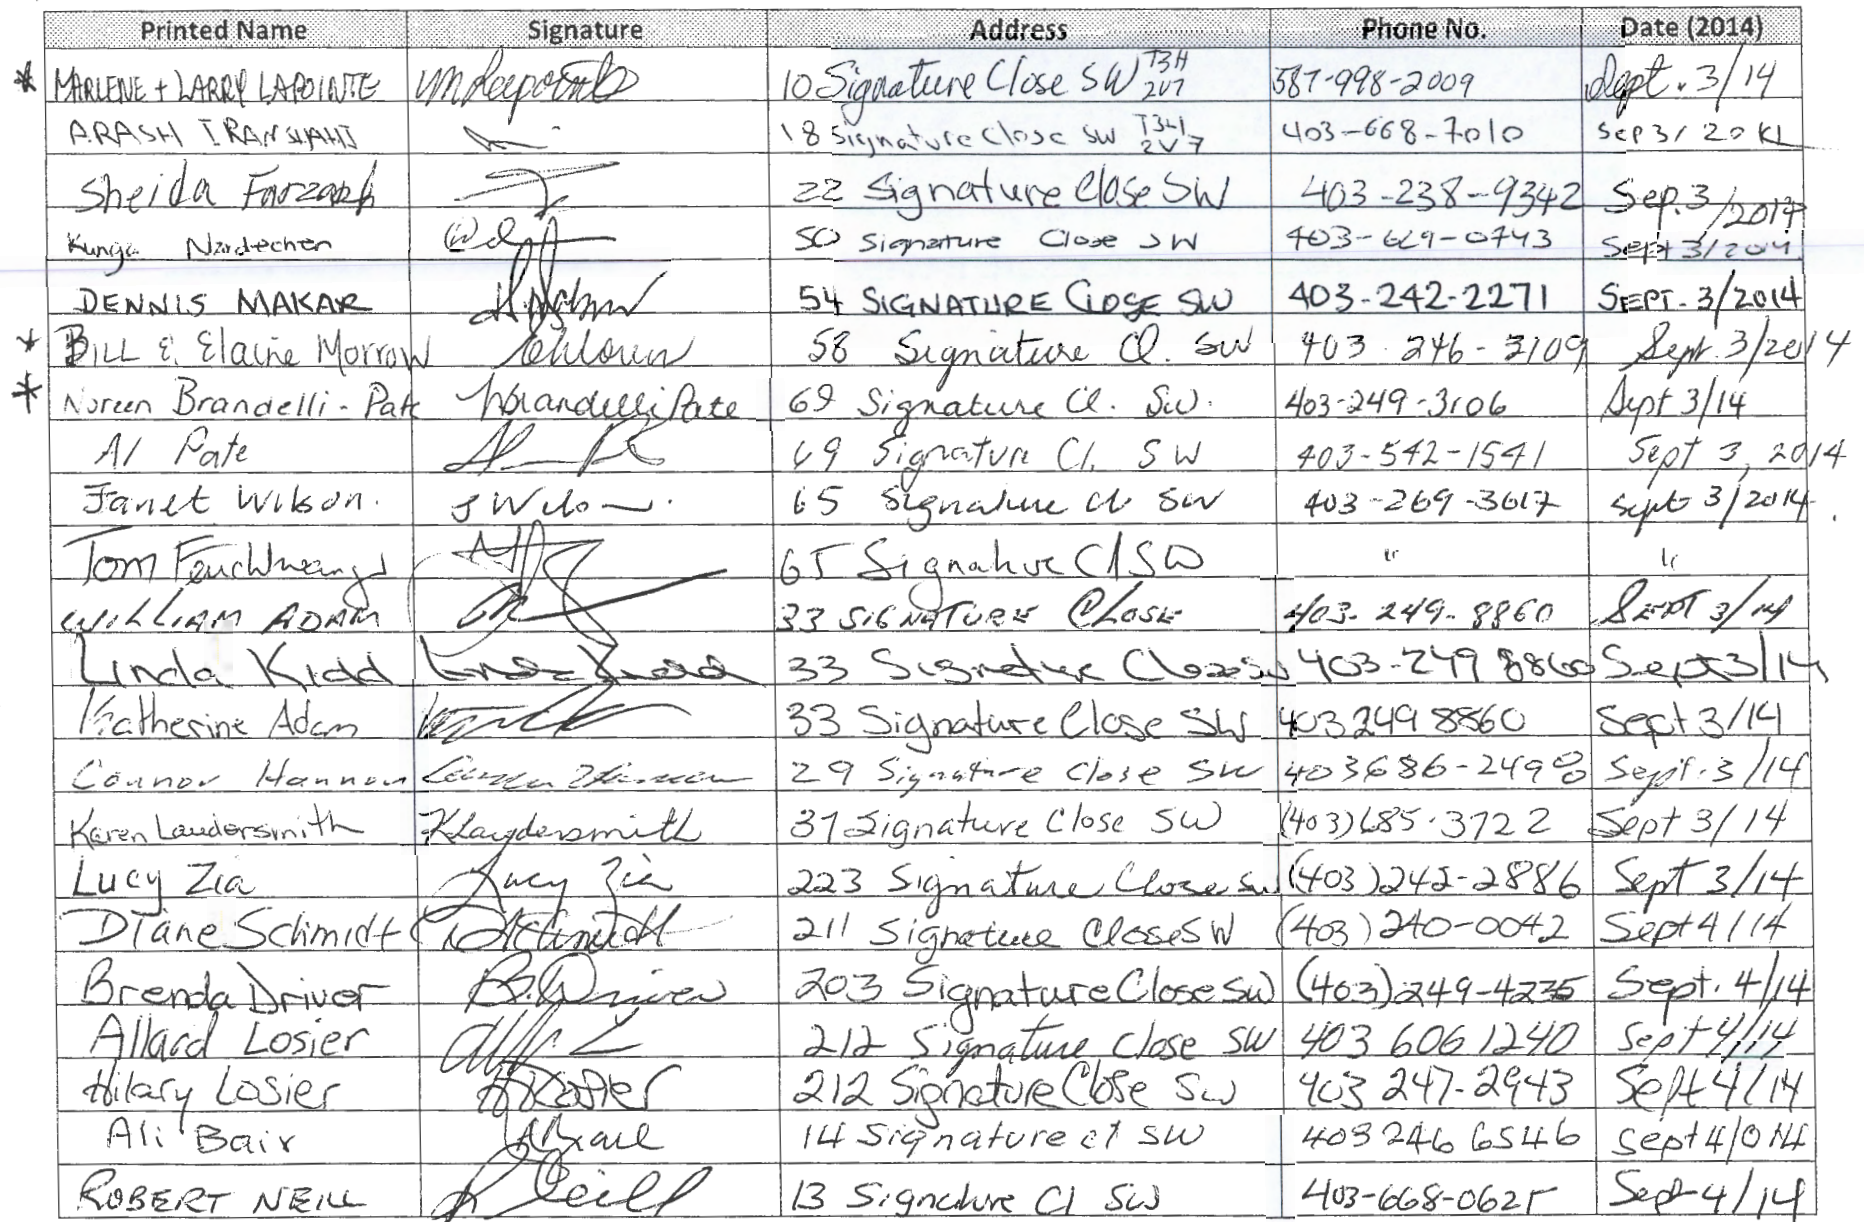 Printed Name Signature Address Phone No. Date (2014)
* MARLENE + LARRY LAPOINTE 10 Signature Close SW T3H 2V7 587-998-2009 Sept. 3/14
ARASH IRANSHAHI 18 Signature Close SW T3H 2V7 403-668-7010 Sep 3/
Sheida 22 Signature Close SW 403-238-9342 Sep. 3/2014
Kunga 50 Signature Close SW 403-669-0743 Sept 3/2014
DENNIS MAKAR 54 SIGNATURE CLOSE SW 403-242-2271 SEPT. 3/2014
* BILL & Elaine Morrow 58 Signature Cl. SW 403 246-3109 Sept. 3/2014
* Noreen Brandelli-Pate NBrandelliPate 69 Signature Cl. SW. 403-249-3106 Sept 3/14
Al Pate 69 Signature Cl. SW 403-542-1541 Sept 3, 2014
Janet Wilson. J Wilson. 65 Signature Cl SW 403-269-3617 Sept 3/2014.
Tom Feuchtwanger 65 Signature Cl SW " "
WILLIAM ADAM 33 SIGNATURE CLOSE 403-249-8860 SEPT 3/14
Linda Kidd Linda Kidd 33 Signature Close SW 403-249 8860 Sept 3/14
Katherine Adam 33 Signature Close SW 403 249 8860 Sept 3/14
Connor Hannon Connor Hannon 29 Signature Close SW 403 686-2490 Sept. 3/14
Karen Laudersmith KLaudersmith 37 Signature Close SW (403) 685-3722 Sept 3/14
Lucy Zia Lucy Zia 223 Signature Close SW (403) 242-2886 Sept 3/14
Diane Schmidt DSchmidt 211 Signature Close SW (403) 240-0042 Sept 4/14
Brenda Driver B. Driver 203 Signature Close SW (403) 249-4235 Sept. 4/14
Allard Losier 212 Signature Close SW 403 606 1240 Sept 4/14
Hilary Losier HLosier 212 Signature Close SW 403 247-2943 Sept 4/14
Ali Bair 14 Signature cl SW 403 246 6546 Sept 4/014
ROBERT NEILL R Neill 13 Signature Cl SW 403-668-0625 Sept 4/14